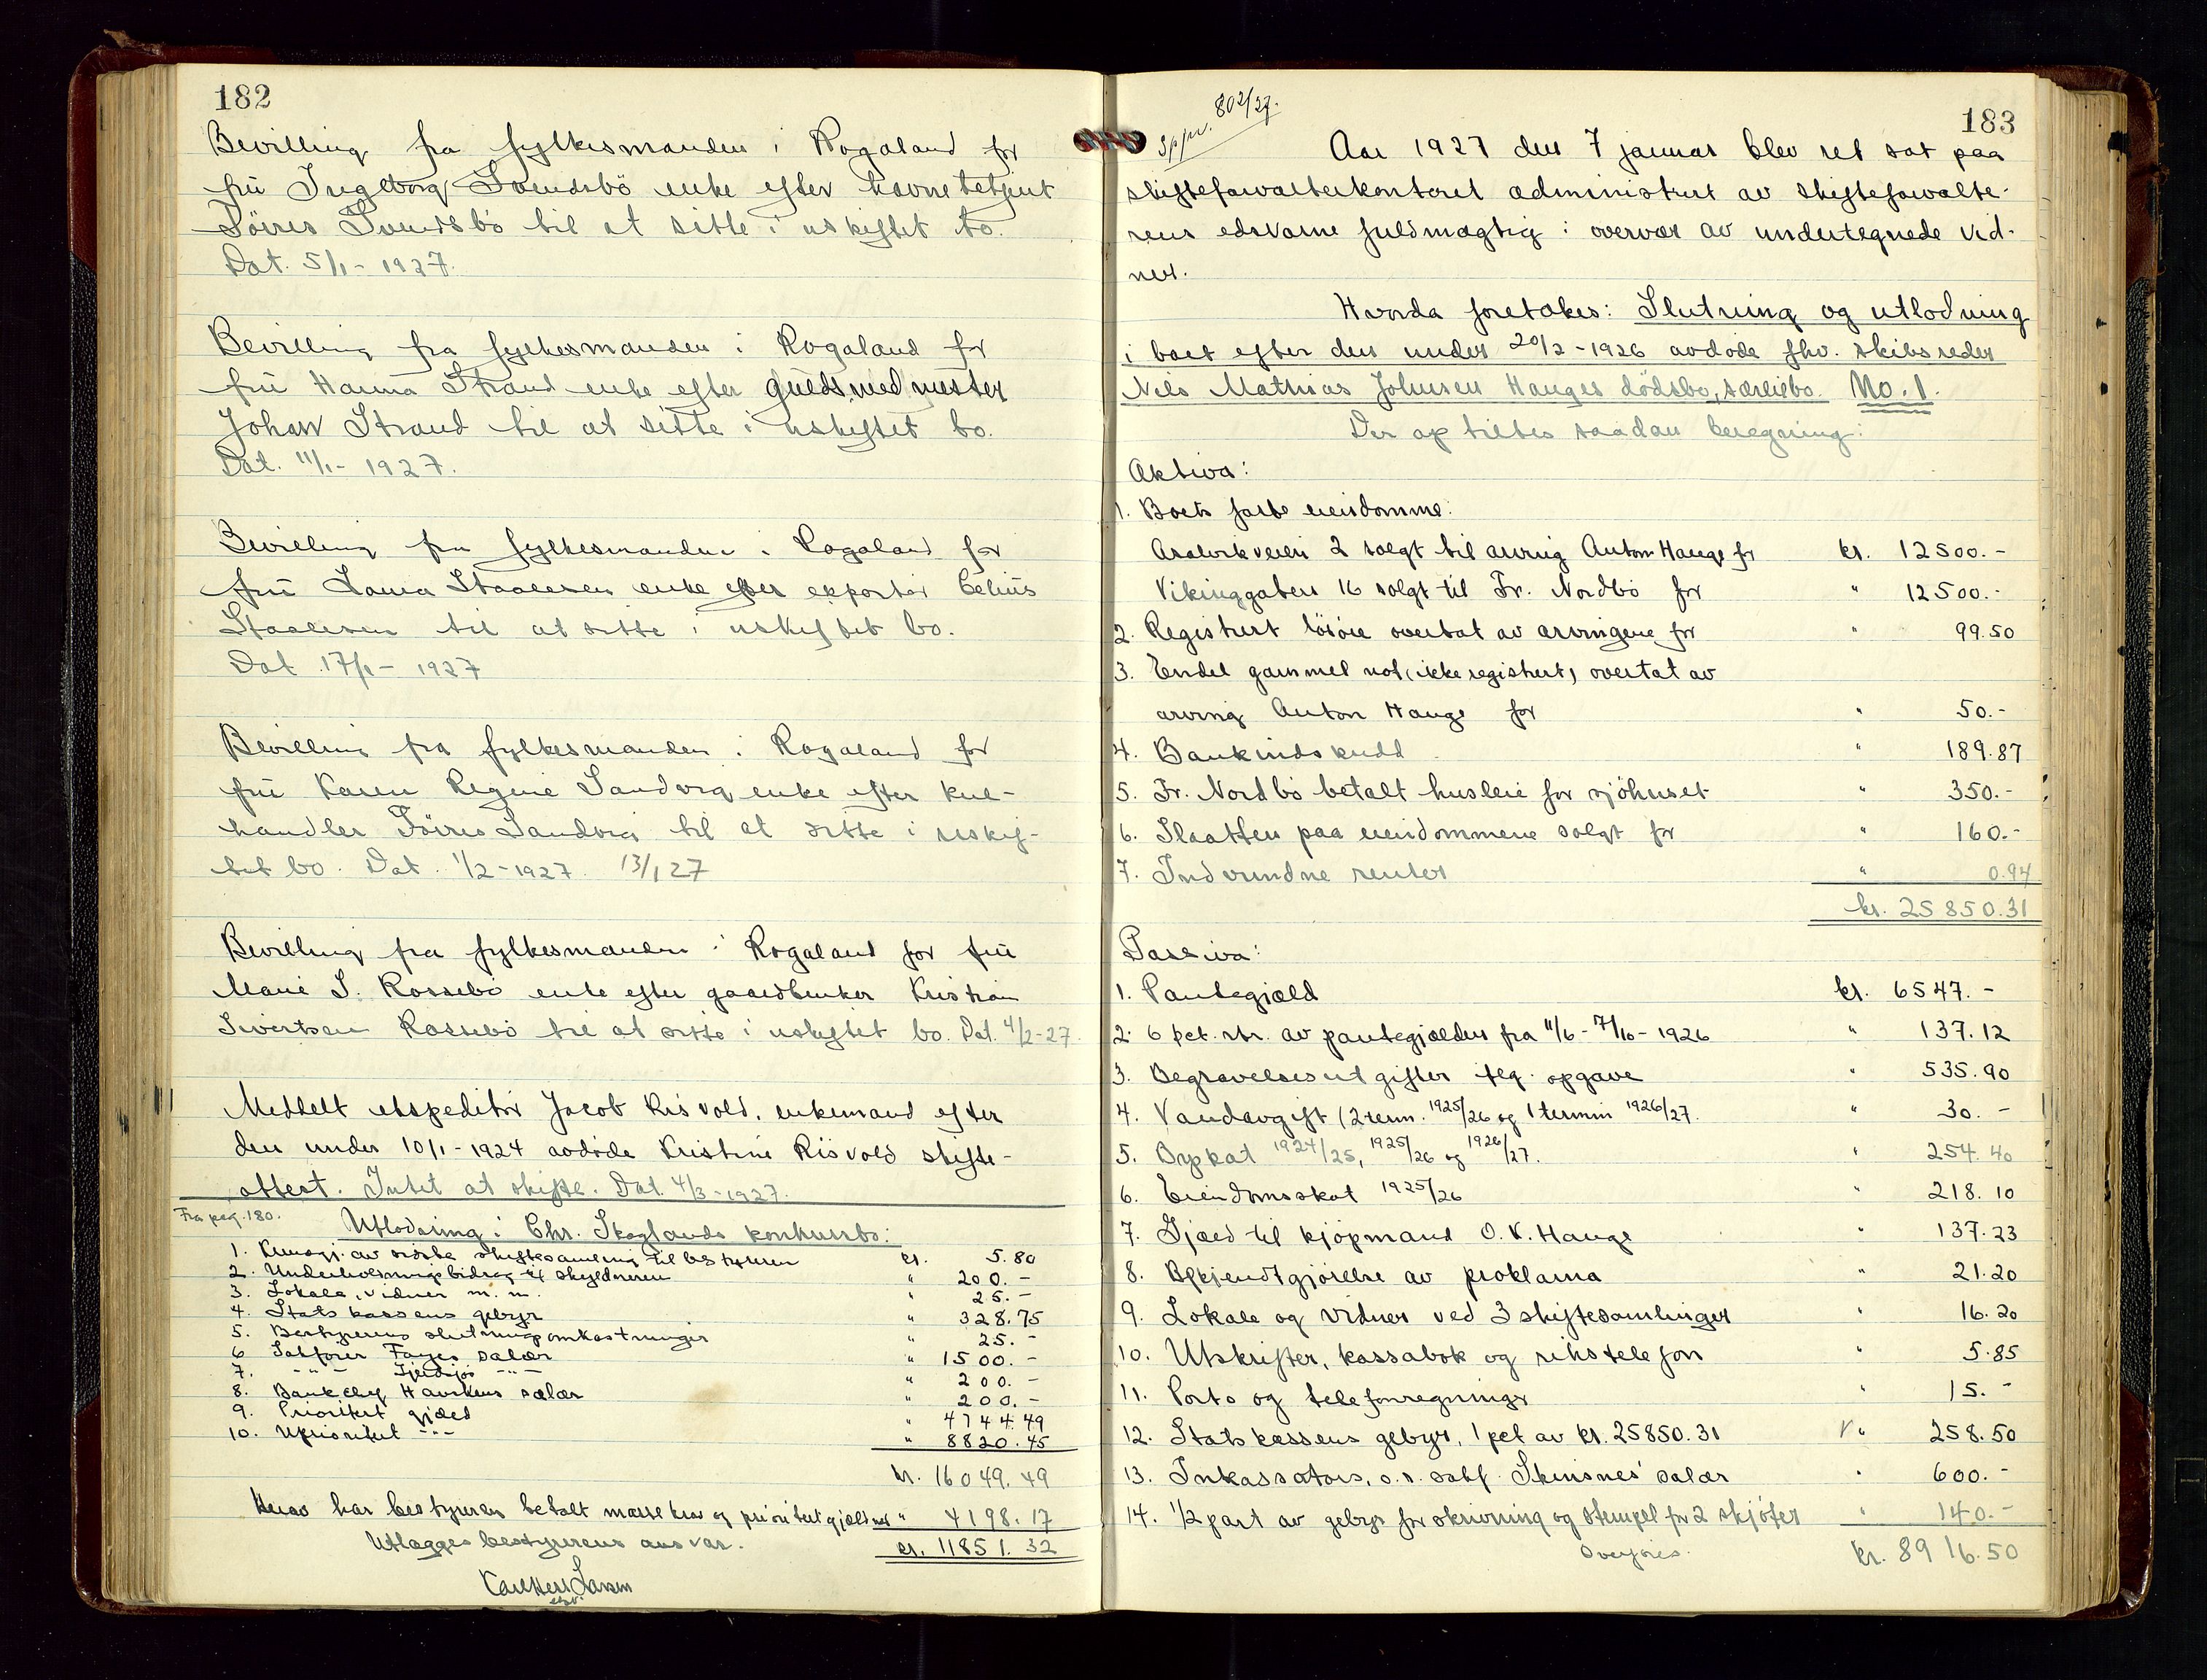 182
Bevilling fra fylkesmanden i Rogaland for
fru Ingeborg Svendsbö enke efter havnebetjent
Svendsbö til at sitte i uskiftet bo.
Dat. 5/1 - 1927.
Bevilling fra fylkesmanden i Rogaland for
fru Hanna Strand enke efter guldsmedmester
Johan Strand til at sitte i uskiftet bo.
Dat. 11/1 - 1927.
Bevilling fra fylkesmanden i Rogaland for
fru Laura Staalesen enke efter exportör
Staalesen til at sitte i uskiftet bo.
Dat. 17/1 - 1927
Bevilling fra fylkesmanden i Rogaland for
fru Karen Regine Sandvig enke efter kul-
handler Sandvig til at sitte i uskif-
tet bo. Dat. 1/2 - 1927. 13/1 27
Bevilling fra fylkesmanden i Rogaland for fru
Marie S. Rossebö enke efter gaardbruker Kristian
Sivertsen Rossebö til at sitte i uskiftet bo. Dat. 4/2-27.
Meddelt ekspeditör Jacob Risvold, enkemand efter
den under 10/1 - 1924 avdöde Kristine Risvold skifte-
attest. Intet at skifte. Dat. 4/3 - 1927.
Fra pag. 180. Utlodning i Chr. Skoglands konkursbo:
1. Kundgj. av sidste skiftesamling til bestyreren kr. 5.80
2. Underholdningsbidrag til skyldneren " 200.-
3. Lokale, vidner m. m. " 25.-
4. Statskassens gebyr " 328.75
5. Bestyrerens slutningsomkostninger " 25.-
6 Sakförer Fayes salær " 1500.-
7. -"- -"- " 200.-
8. Bankchef Hauskens salær " 200.-
9. Prioritert gjæld " 4744.49
10. Uprioritert -"- " 8820.45
kr. 16049.49
Herav har bestyreren betalt massekrav og prioritert gjæld med " 4198.17
Utlægges bestyrerens ansvar. kr. 11851.32
Larsen
183
802/27.
Aar 1927 den 7 januar blev ret sat paa
skifteforvalterkontoret administrert av skifteforvalte-
rens edsvorne fuldmægtig i overvær av undertegnede vid-
ner.
Hvorda foretokes: Slutning og utlodning
i boet efter den under 20/2 - 1926 avdöde fhv. skibsreder
Nils Mathias Johnsen Hauges dödsbo, særeiebo. No. 1.
Der op sattes saadan beregning:
Aktiva:
1. Boets faste eiendomme:
Aralvikveien 2 solgt til arving Anton Hauge for kr. 12500.-
Vikinggaten 16 solgt til Fr. Nordbö for " 12500.-
2. Registrert lösöre overtat av arvingene for " 99.50
3. Endel gammel not (ikke registrert) overtat av
arving Anton Hauge for " 50.-
4. Bankindskudd " 189.87
5. Fr. Nordbö betalt husleie for sjöhuset " 350.-
6. Slaatten paa eiendommene solgt for " 160.-
7. Indvundne renter " 0.94
kr. 25850.31
Passiva:
1. Pantegjæld kr. 6547.-
2. 6 pct. rtr. av pantegjælden fra 11/6 - 7/10 - 1926 " 137.12
3. Begravelsesutgifter flg. opgave " 535.90
4. Vandavgift (2 term. 1925/26 og 1 termin 1926/27. " 30.-
5. Byskat 1924/25, 1925/26 og 1926/27. " 254.40
6. Eiendomsskat 1925/26 " 218.10
7. Gjæld til kjöpmand O. V. Hauge " 137.23
8. Bekjendtgjörelse av proklama " 21.20
9. Lokale og vidner ved 3 skiftesamlinger " 16.20
10. Utskrifter, kassabok og rikstelefon " 5.85
11. Porto og telefonregninger " 15.-
12. Statskassens gebyr, 1 pct av kr. 25850.31 V " 258.50
13. Inkassators, o.r. sakf. Skeisnes' salær " 600.-
14. 1/2 part av gebyr for skrivning og stempel for 2 skjöter " 140.-
Overföres. kr. 8916.50